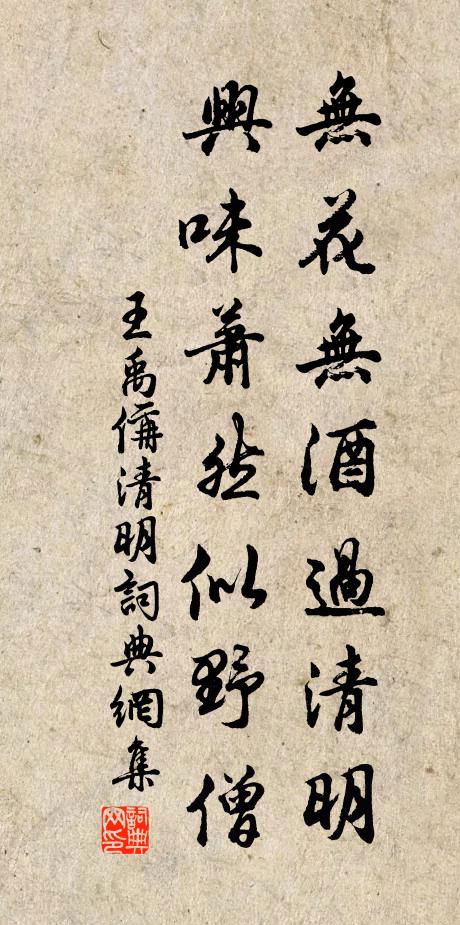 無花無酒過清明
興味蕭然似野僧
王禹偁清明詞典網集
詞典网印